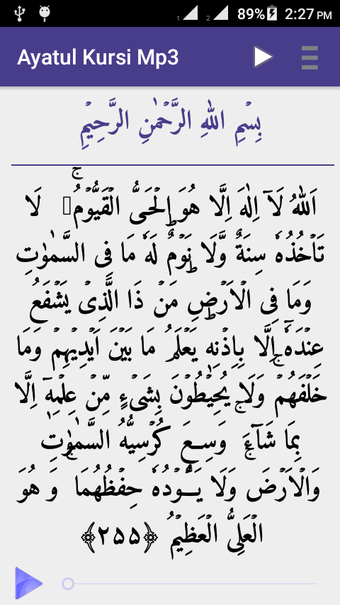 1 2 89% 2:27 PM
Ayatul Kursi Mp3
بِسْمِ اللهِ الرَّحْمٰنِ الرَّحِيْمِ
اَللهُ لَاۤ اِلٰهَ اِلَّا هُوَ الْحَىُّ الْقَيُّوْمُۚ لَا
تَاْخُذُهٗ سِنَةٌ وَّلَا نَوْمٌؕ لَهٗ مَا فِى السَّمٰوٰتِ
وَمَا فِى الْاَرْضِؕ مَنْ ذَا الَّذِىْ يَشْفَعُ
عِنْدَهٗۤ اِلَّا بِاِذْنِهٖؕ يَعْلَمُ مَا بَيْنَ اَيْدِيْهِمْ وَمَا
خَلْفَهُمْۚ وَلَا يُحِيْطُوْنَ بِشَىْءٍ مِّنْ عِلْمِهٖۤ اِلَّا
بِمَا شَآءَۚ وَسِعَ كُرْسِيُّهُ السَّمٰوٰتِ
وَالْاَرْضَۚ وَلَا يَـــُٔوْدُهٗ حِفْظُهُمَاۚ وَ هُوَ
الْعَلِىُّ الْعَظِيْمُ ﴿۲۵۵﴾